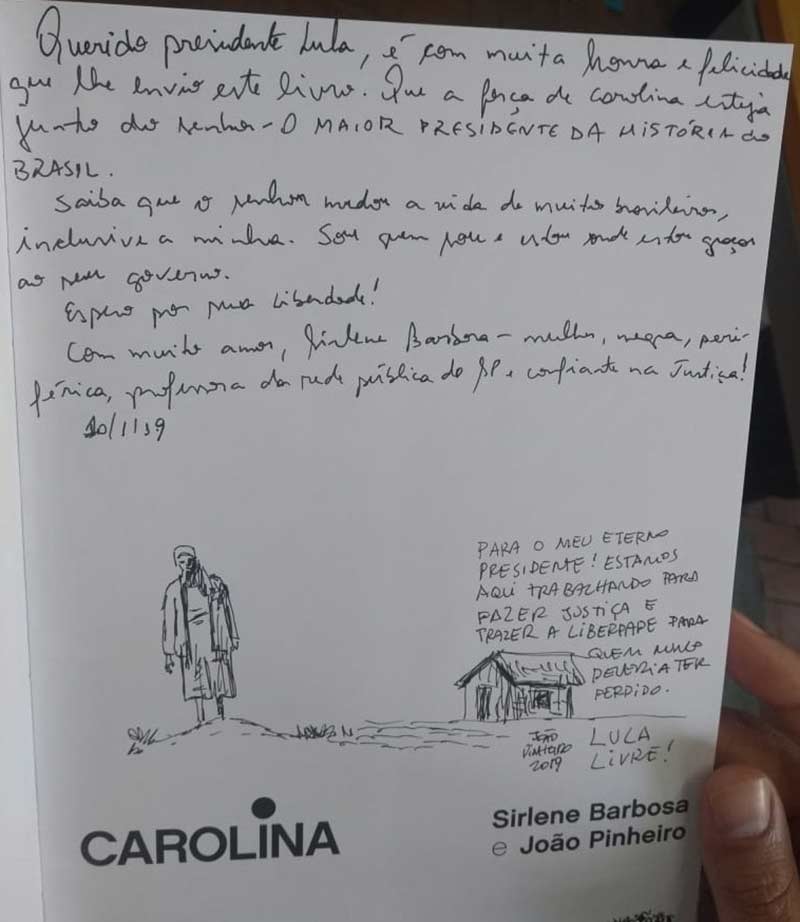 Querido presidente Lula, é com muita honra e felicidade
que lhe envio este livro. Que a força de Carolina esteja
junto do senhor - O MAIOR PRESIDENTE DA HISTÓRIA do
BRASIL.
Saiba que o senhor mudou a vida de muitos brasileiros,
inclusive a minha. Sou quem sou e estou onde estou graças
ao seu governo.
Espero por sua liberdade!
Com muito amor, Sirlene Barbosa - mulher, negra, peri-
férica, professora da rede pública de SP e confiante na Justiça!
10/1/19
PARA O MEU ETERNO
PRESIDENTE! ESTAMOS
AQUI TRABALHANDO PARA
FAZER JUSTIÇA E
TRAZER A LIBERDADE PARA
QUEM NUNCA
DEVERIA TER
PERDIDO.
JOÃO
PINHEIRO
2019
LULA
LIVRE!
CAROLINA
Sirlene Barbosa
e João Pinheiro